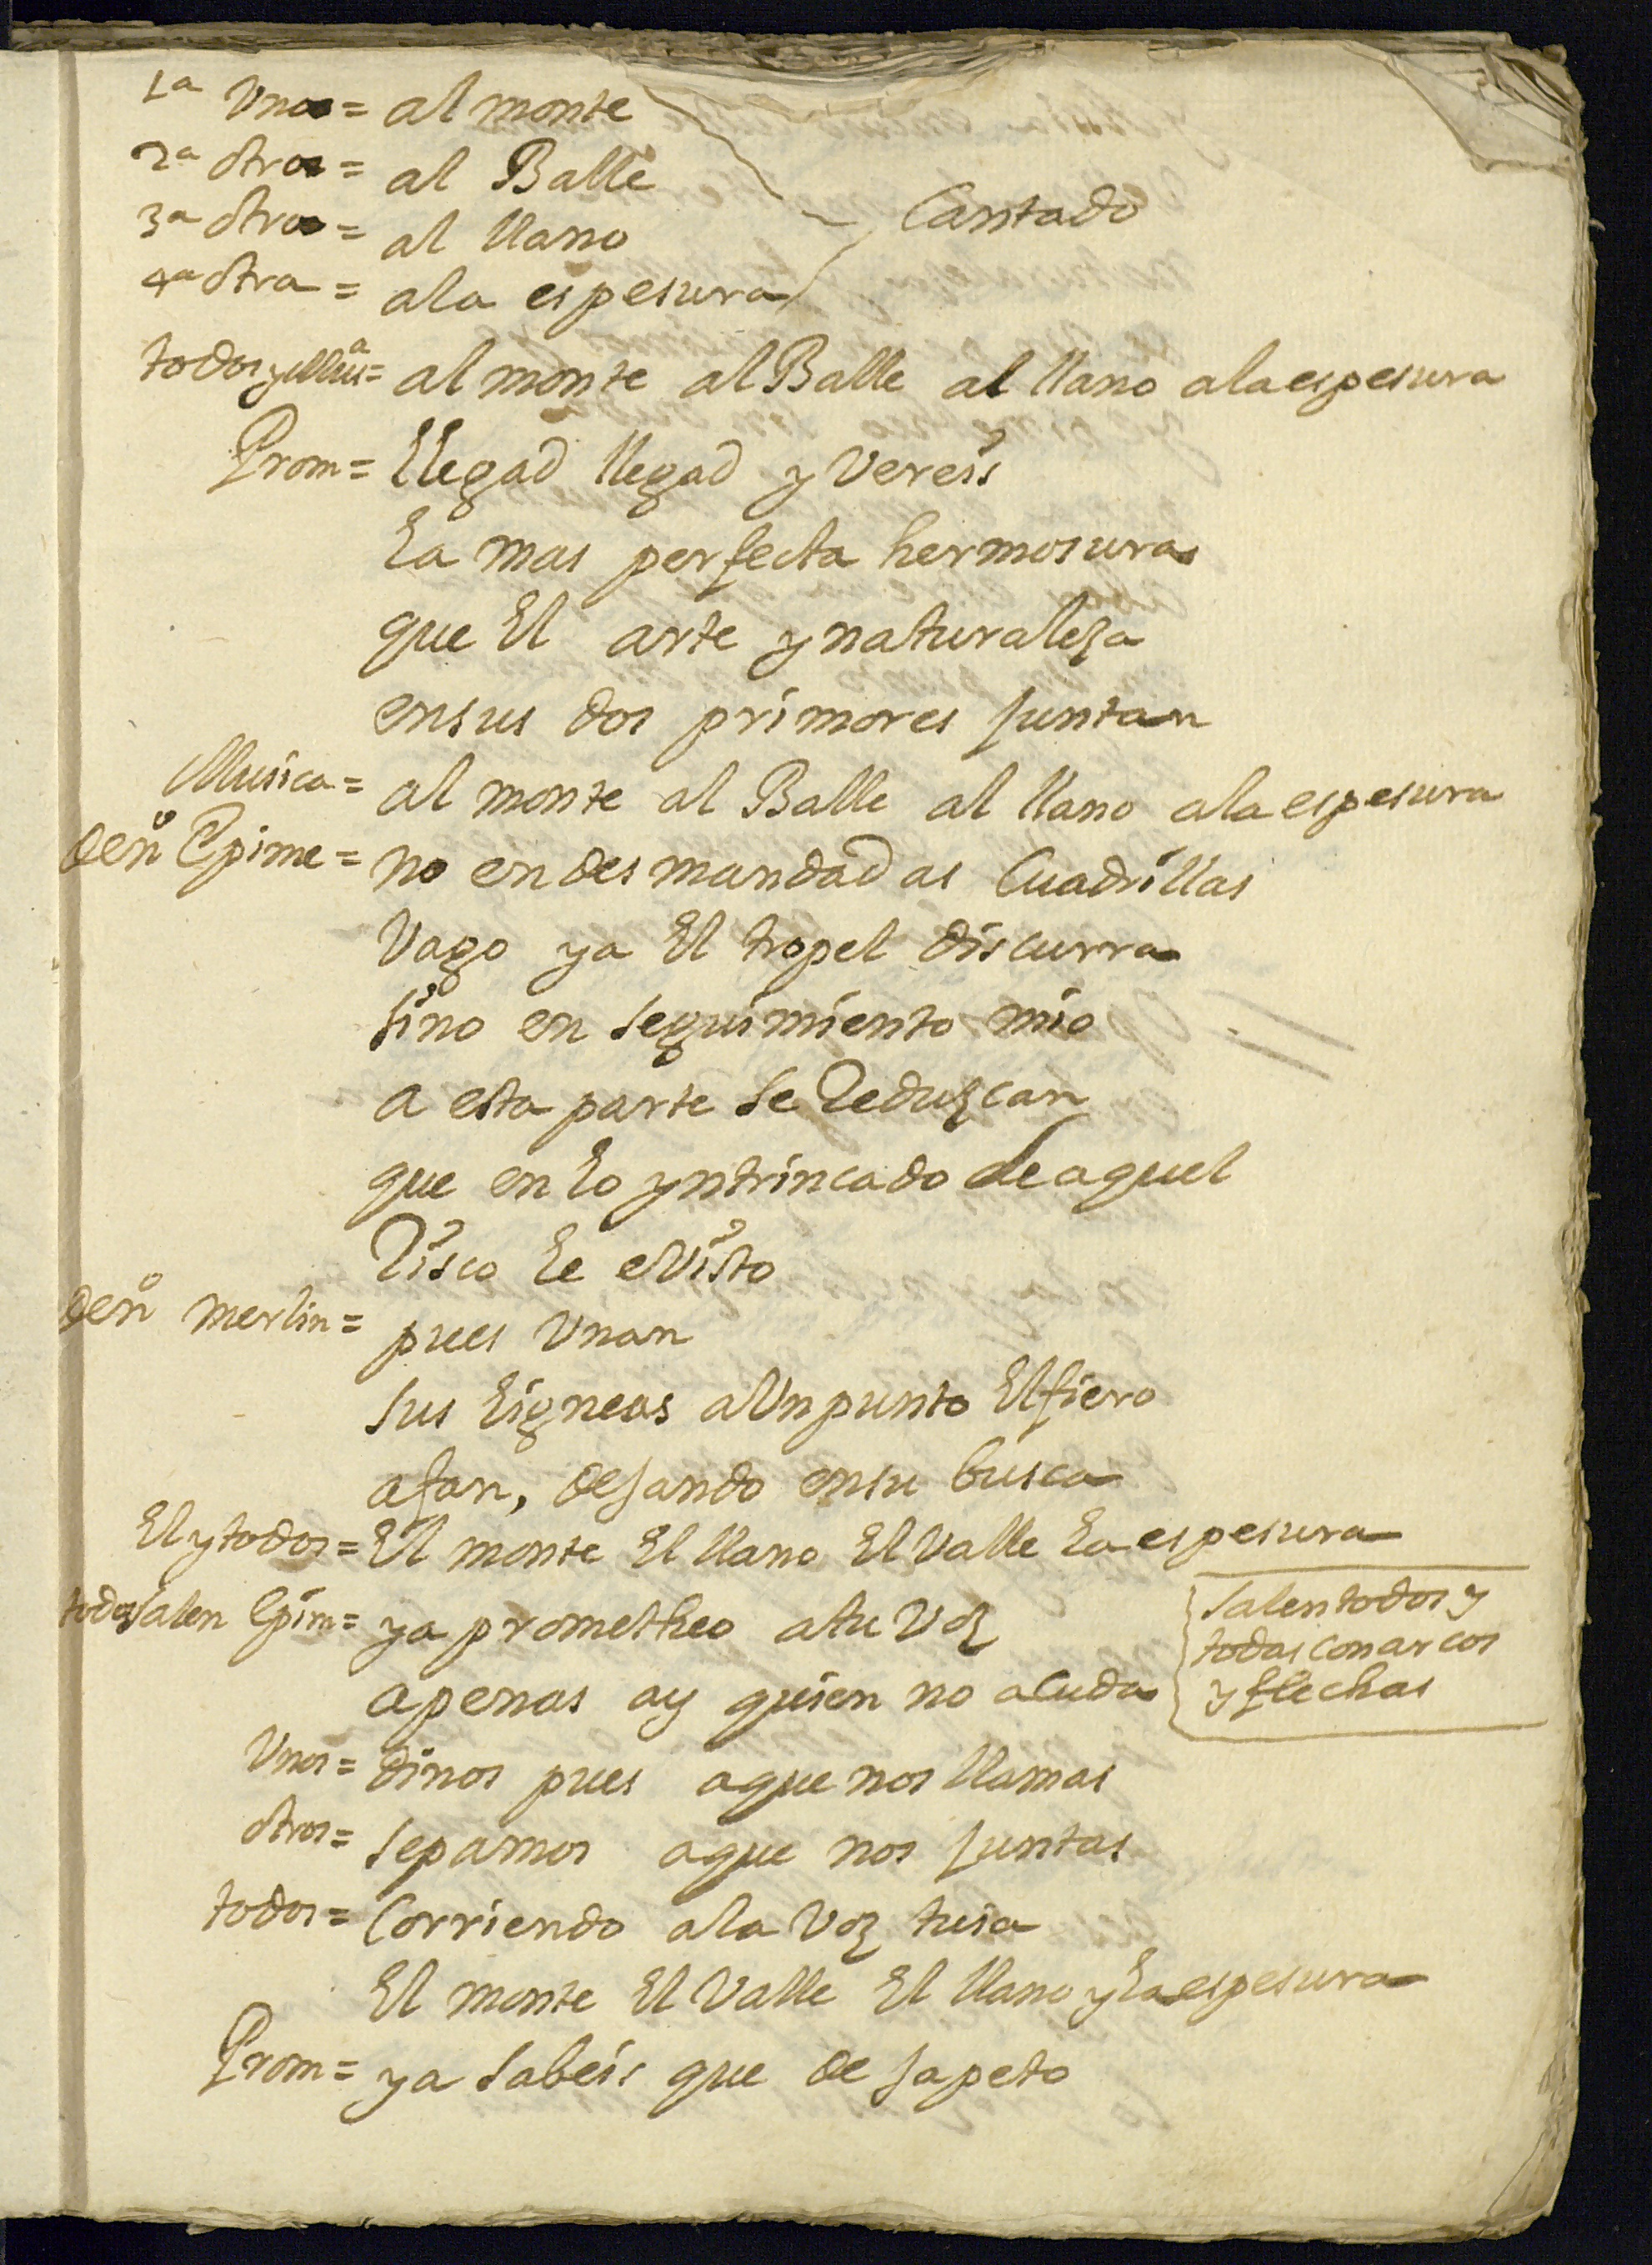 1ª Una = al monte
2ª otra = al Balle
3ª otra = al llano
Cantado
4ª otra = ala espesura
todos y Mus.ª = al monte al Balle al llano ala espesura
Prom = llegad llegad y vereis
La mas perfecta hermosura
que El arte y naturaleza
ensus dos primores Juntan
Musica = al monte al Balle al llano ala espesura
denº Epime = no en desmandadas Cuadrillas
Vago ya El tropel discurra
sino en seguimiento mio
a esta parte se Reduzcan
que en lo yntrincado de aquel
Risco le e visto
denº merlin = pues Unan
sus lineas aUn punto El fiero
afan, dejando ensu busca
El y todos = El monte El llano El Valle La espesura
todos salen Epim = ya prometheo atu Voz
apenas ay quien no acuda
salen todos y
todas con arcos
y flechas
Unos = dinos pues aque nos llamas
otros = sepamos aque nos Juntas
todos = Corriendo ala Voz tuia
El monte El Valle El llano y la espesura
Prom = ya sabeis que de Japeto